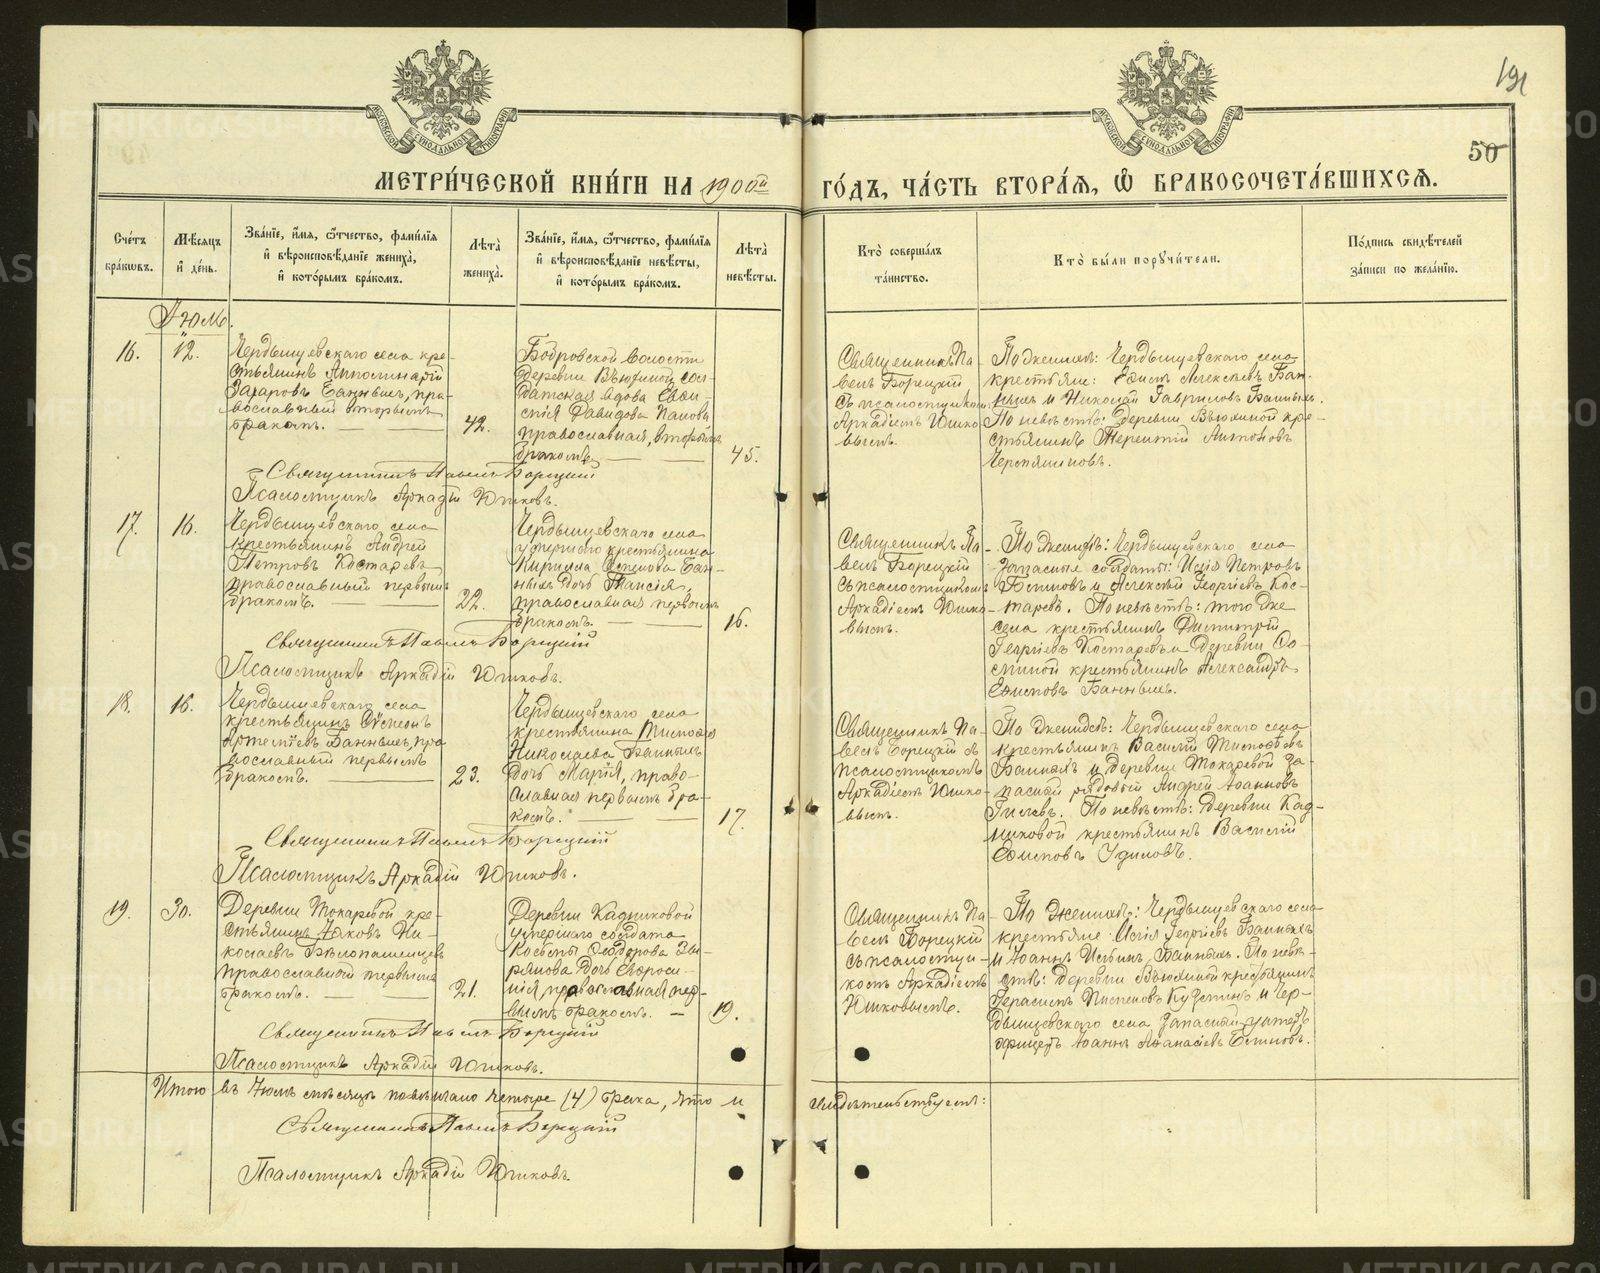 191
50
МЕТРИ́ЧЕСКОЙ КНИ́ГИ НА 1900й ГО́ДЪ, ЧА́СТЬ ВТОРА́Я, Ѽ БРАКОСОЧЕТА́ВШИХСЯ.
Сче́тъ бра́кѡвъ.
Мѣ́сяцъ и҆ де́нь.
Зва́нїе, и҆́мя, ѻ҆́тчество, фами́лїя и҆ вѣроисповѣ́данїе жениха̀, и҆ кото́рымъ бра́комъ.
Лѣта̀ жениха̀.
Зва́нїе, и҆́мя, ѻ҆́тчество, фами́лїя и҆ вѣроисповѣ́данїе невѣ́сты, и҆ кото́рымъ бра́комъ.
Лѣта̀ невѣ́сты.
Кто̀ соверша́лъ та́инство.
Кто̀ бы́ли поручи́тели.
По́дпись свидѣ́телей за́писи по жела́нїю.
16.
12.
Чердынцевскаго села кре-
стьянинъ Апполинарій
Захаровъ Банныхъ, пра-
вославный вторымъ
бракомъ.
42.
Бобровской волости
деревни Вьюхиной сол-
датская вдова
Давидова
православная, вторымъ
бракомъ.
45.
Священникъ Па-
велъ Борецкій
съ псаломщикомъ
Аркадіемъ Юшко-
вымъ.
По женихѣ: Чердынцевскаго села
крестьяне: Алексѣевъ Бан-
ныхъ и Николай Гавриловъ Банныхъ.
По невѣстѣ: деревни Вьюхиной кре-
стьянинъ Терентій Антоновъ
Священникъ Павелъ Борецкій
Псаломщикъ Аркадій Юшковъ.
17.
16.
Чердынцевскаго села
крестьянинъ Андрей
Петровъ Костаревъ
православный первымъ
бракомъ.
22.
Чердынцевскаго села
умершаго крестьянина
Кирилла Бан-
ныхъ дочь Таисія,
православная первымъ
бракомъ.
16.
Священникъ Па-
велъ Борецкій
съ псаломщикомъ
Аркадіемъ Юшко-
вымъ.
По женихѣ: Чердынцевскаго села
запасные солдаты: Исаія Петровъ
и Алексѣй Георгіевъ Кос-
таревъ. По невѣстѣ: того же
села крестьянинъ Димитрій
Георгіевъ Костаревъ и деревни
крестьянинъ Александръ
Банныхъ.
Священникъ Павелъ Борецкій
Псаломщикъ Аркадій Юшковъ.
18.
16.
Чердынцевскаго села
крестьянинъ
Артеміевъ Банныхъ, пра-
вославный первымъ
бракомъ.
23.
Чердынцевскаго села
крестьянина
Николаева Банныхъ
дочь Марія, право-
славная первымъ бра-
комъ.
17.
Священникъ Па-
велъ Борецкій съ
псаломщикомъ
Аркадіемъ Юшко-
вымъ.
По женихѣ: Чердынцевскаго села
крестьянинъ Василій
Банныхъ и деревни Токаревой за-
пасный рядовой Андрей Іоанновъ
По невѣстѣ: деревни Кад-
никовой крестьянинъ Василій
Священникъ Павелъ Борецкій
Псаломщикъ Аркадій Юшковъ.
19.
30.
Деревни Токаревой кре-
стьянинъ Іаковъ Ни-
колаевъ Бѣлопашенцевъ
православный первымъ
бракомъ.
21.
Деревни Кадниковой
умершаго солдата
Косьмы Ѳеодорова Зы-
рянова дочь Евфроси-
нія православная пер-
вымъ бракомъ.
19.
Священникъ Па-
велъ Борецкій
съ псаломщи-
комъ Аркадіемъ
Юшковымъ.
По женихѣ: Чердынцевскаго села
крестьяне Исаія Георгіевъ Банныхъ
и Іоаннъ Банныхъ. По невѣ-
стѣ: деревни Вьюхиной крестьянинъ
Герасимъ и Чер-
дынцевскаго села запасный унтеръ
офицеръ Іоаннъ Аѳанасіевъ
Священникъ Павелъ Борецкій
Псаломщикъ Аркадій Юшковъ.
Итого въ мѣсяцѣ повѣнчано четыре (4) брака, что и свидѣтельствуемъ:
Священникъ Павелъ Борецкій
Псаломщикъ Аркадій Юшковъ.